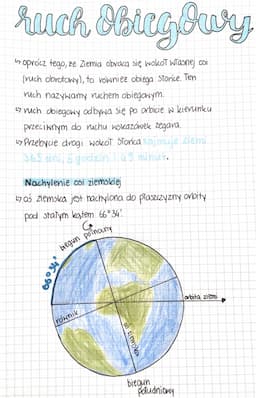 ruch obiegowy
↳ oprócz tego, że Ziemia obraca się wokół własnej osi
(ruch obrotowy), to również obiega Słońce. Ten
ruch nazywamy ruchem obiegowym.
↳ ruch obiegowy odbywa się po orbicie w kierunku
przeciwnym do ruchu wskazówek zegara.
↳ Przebycie drogi wokół Słońca zajmuje Ziemi
365 dni, 5 godzin i 49 minut.
Nachylenie osi ziemskiej
↳ oś ziemska jest nachylona do płaszczyzny orbity
pod stałym kątem 66°34'.
biegun północny
66°34'
orbita ziemi
równik
oś ziemska
biegun
południowy